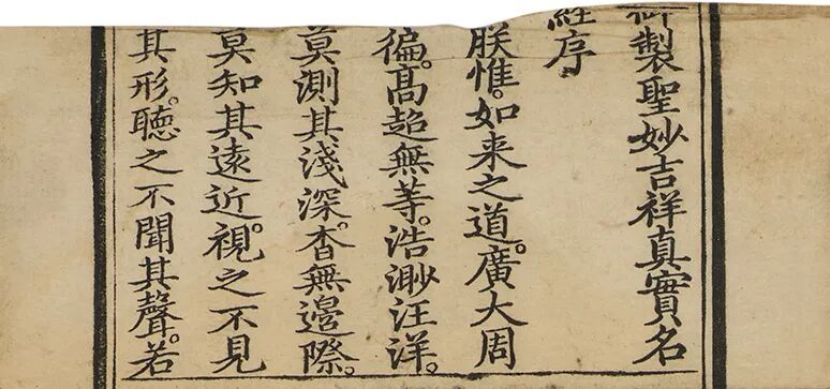 御製聖妙吉祥真實名
經序
朕惟。如来之道。廣大周
徧。髙超無等。浩渺汪洋。
莫測其淺深。杳無邊際。
莫知其遠近。視之不見
其形。聽之不聞其聲。若